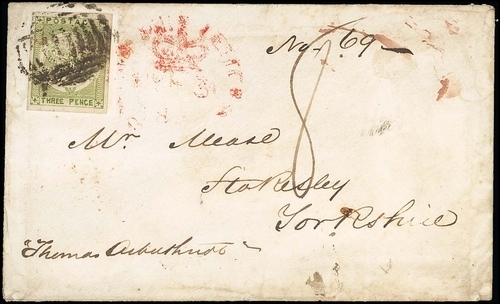 POSTAGE
THREE PENCE
No. 69
8
Mr. Mease
Stokesley
Yorkshire
"Thomas Arbuthnot"